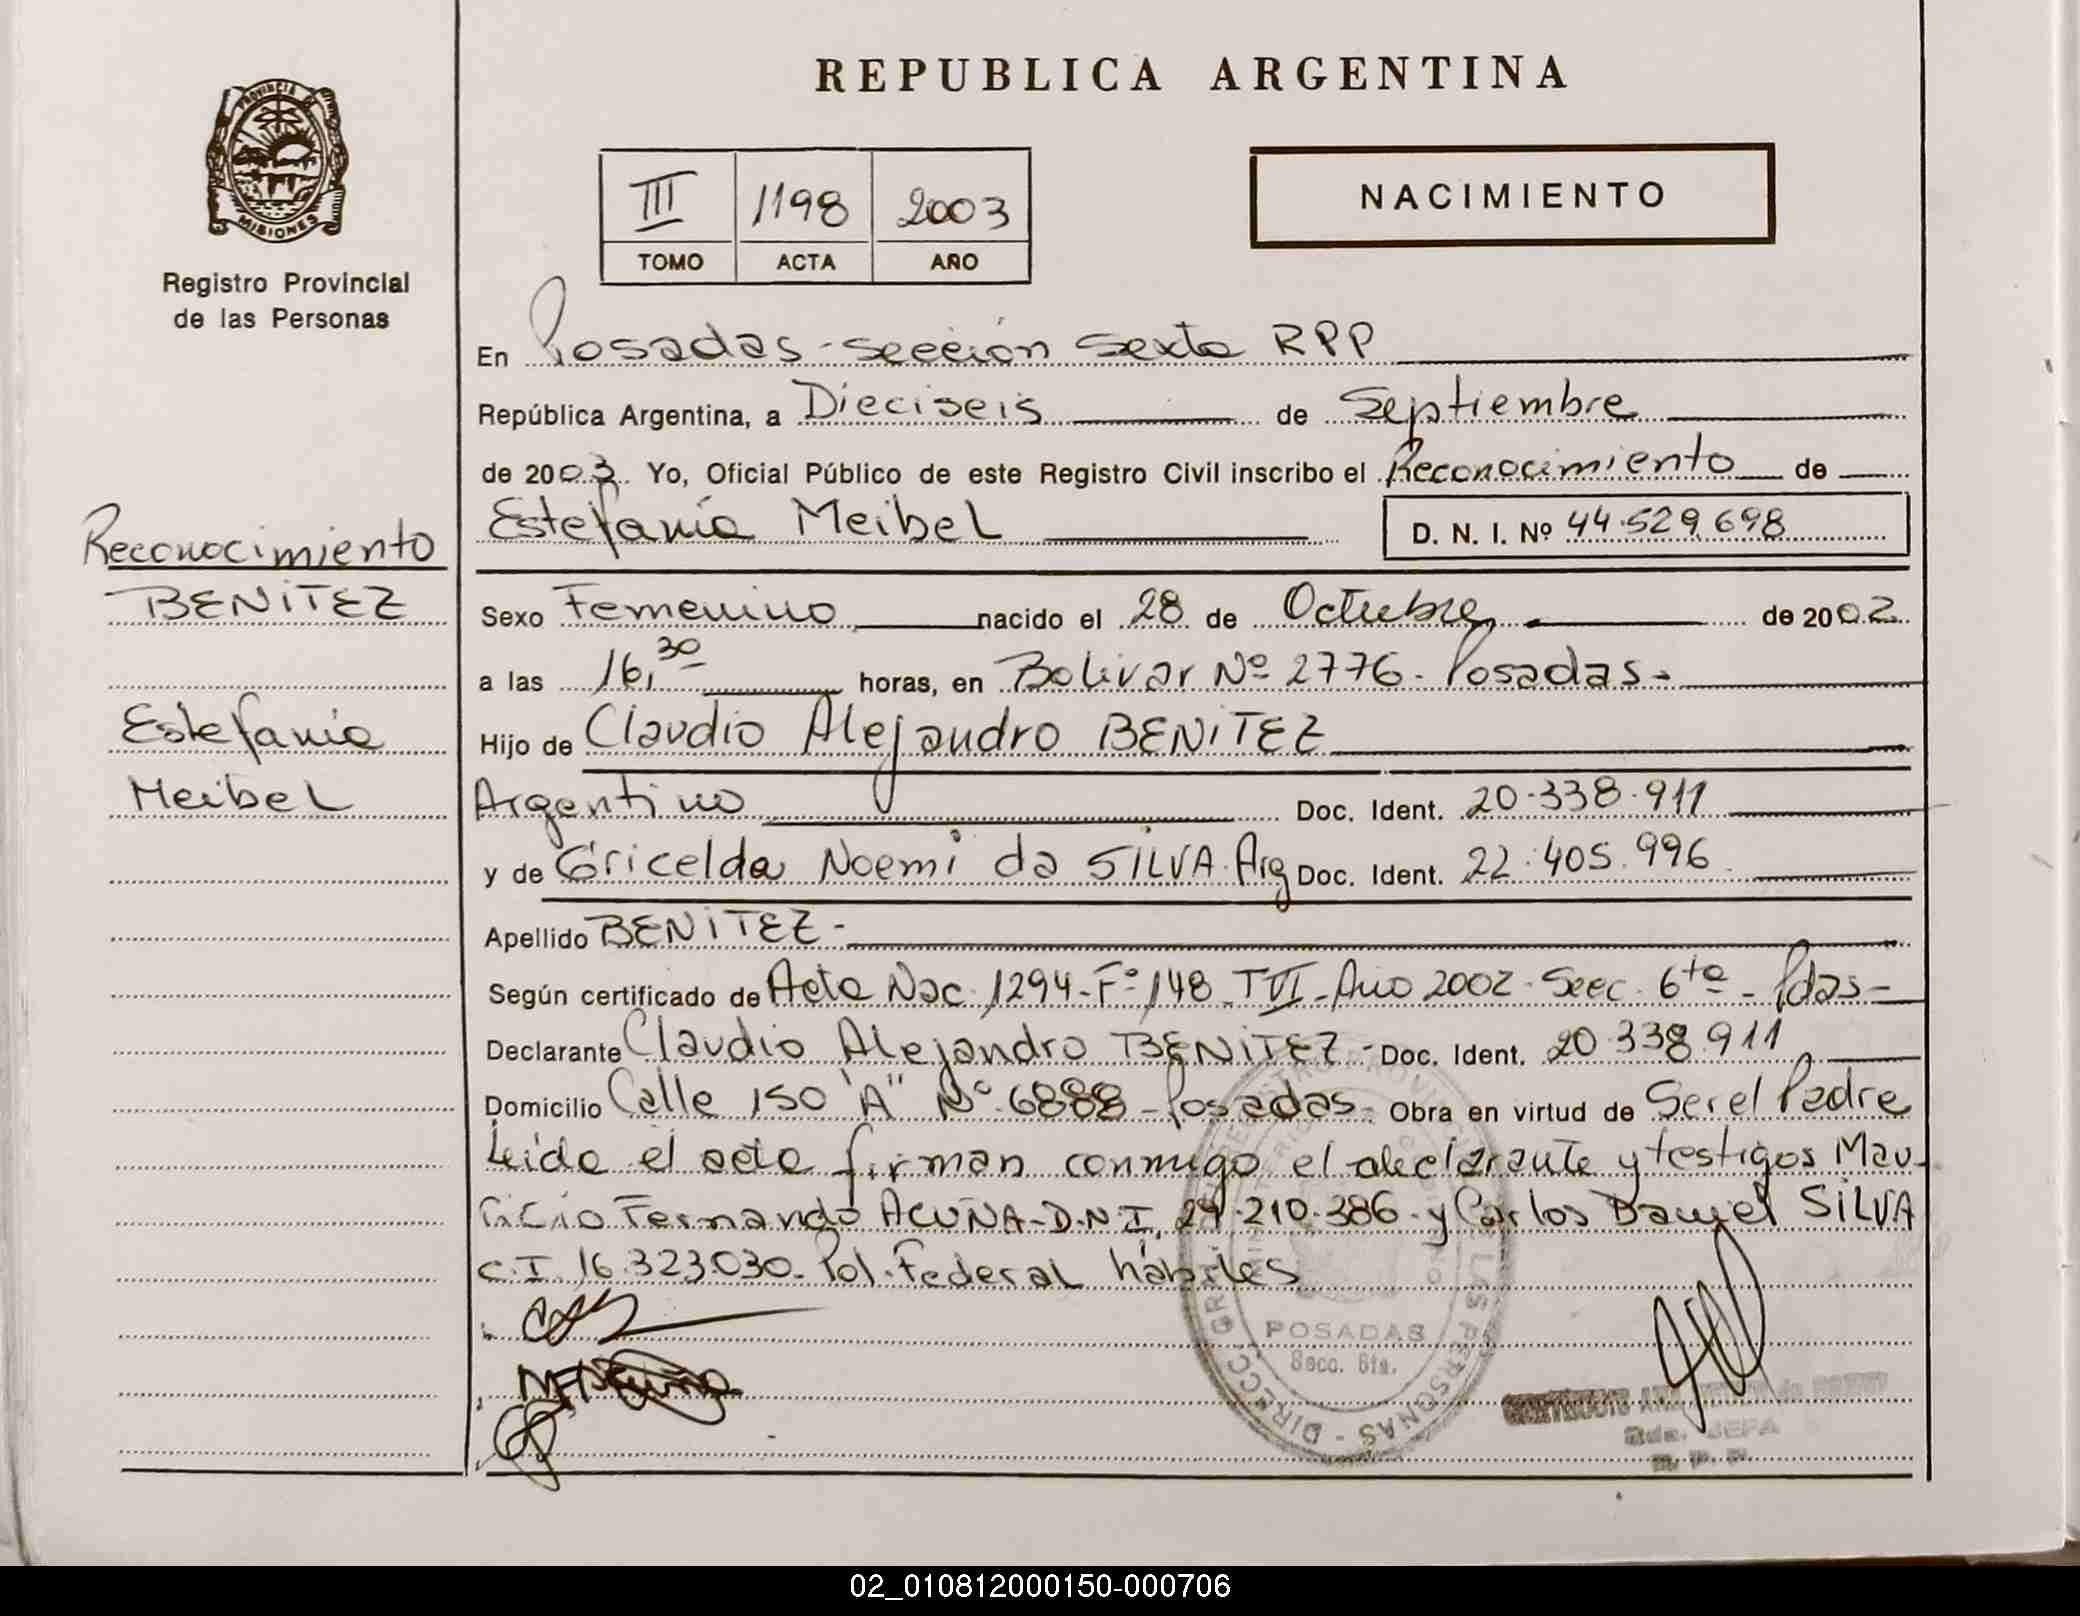 REPUBLICA ARGENTINA
PROVINCIA DE
MISIONES
Registro Provincial
de las Personas
III 1198 2003
TOMO ACTA AÑO
NACIMIENTO
En Posadas - sección Sexta RPP
República Argentina, a Dieciseis de Septiembre
de 2003. Yo, Oficial Público de este Registro Civil inscribo el Reconocimiento de
Estefanía Meibel D. N. I. Nº 44.529.698
Reconocimiento
BENITEZ
Estefanía
Meibel
Sexo Femenino nacido el 28 de Octubre de 2002.
a las 16,30 horas, en Bolivar Nº 2776 - Posadas -
Hijo de Claudio Alejandro BENITEZ
Argentino Doc. Ident. 20.338.911
y de Gricelda Noemi da SILVA - Arg Doc. Ident. 22.405.996
Apellido BENITEZ -
Según certificado de Acta Nac. 1294 - Fº 148 - T VI - Año 2002 - Secc. 6ta - Pdas -
Declarante Claudio Alejandro BENITEZ - Doc. Ident. 20.338.911
Domicilio Calle 150 "A" Nº 6888 - Posadas - Obra en virtud de Ser el Padre
Leida el acta firman conmigo el declarante y testigos Mau-
ricio Fernando ACUÑA - D.N.I. 29.210.386 - y Carlos Daniel SILVA
C.I. 16.323.030 - Pol. Federal hábiles
POSADAS
Secc. 6ta.
JEFA
R. P. P.
02_010812000150-000706